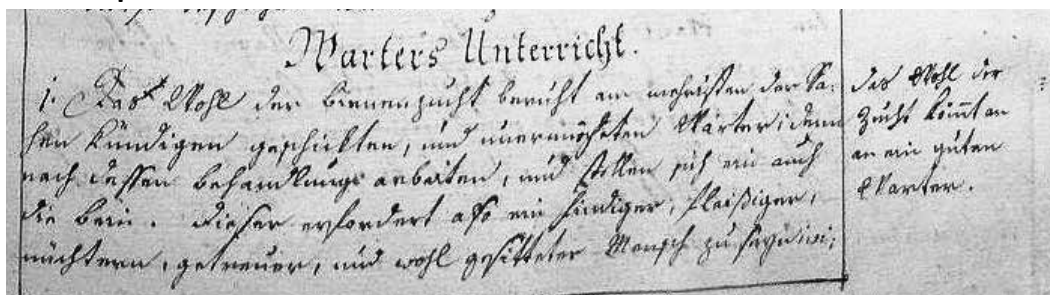 Warters Unterricht.
1. Das Wohl der bienenzucht beruht am mehristen der Sa-
chen Kündigen geschickten, und unermüdeten Wärter; denn
nach dessen behandlung arbeiten, und stellen sich ein auch
die bein. Dieser erfordert also ein fündiger, fleißiger,
nüchtern, getreuer, und wohl gesitteter Mensch zu seyn
das Wohl der
Zucht kömt an
an ein guten
Warter.